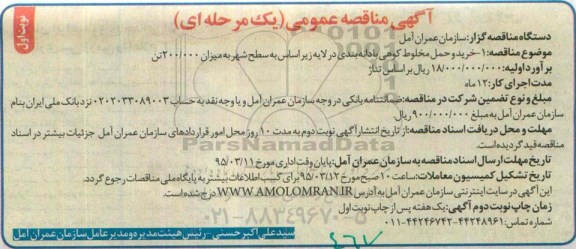 آگهی مناقصه عمومی (یک مرحله ای)
نوبت اول
دستگاه مناقصه گزار: سازمان عمران آمل
موضوع مناقصه: ۱- خرید و حمل مخلوط کوهی با دانه بندی در لایه زیر اساس به سطح شهر به میزان ۲۰۰/۰۰۰ تن
برآورد اولیه: ۱۸/۰۰۰/۰۰۰/۰۰۰ ریال بر اساس تناژ
مدت اجرای کار: ۱۲ ماه
مبلغ و نوع تضمین شرکت در مناقصه: ضمانتنامه بانکی در وجه سازمان عمران آمل و یا وجه نقد به حساب ۰۲۰۲۰۲۳۳۰۸۹۰۰۳ نزد بانک ملی ایران بنام
سازمان عمران آمل به مبلغ ۹۰۰/۰۰۰/۰۰۰ ریال
مهلت و محل دریافت اسناد مناقصه: از تاریخ انتشار آگهی نوبت دوم به مدت ۱۰ روز محل امور قراردادهای سازمان عمران آمل جزئیات بیشتر در اسناد
مناقصه قید گردیده است.
تاریخ مهلت ارسال اسناد مناقصه به سازمان عمران آمل: پایان وقت اداری مورخ ۹۵/۰۳/۱۱
تاریخ تشکیل کمیسیون معاملات: ساعت ۱۰ صبح مورخ ۹۵/۰۳/۱۲ برای کسب اطلاعات بیشتر به پایگاه ملی مناقصات رجوع گردد.
این آگهی در سایت اینترنتی سازمان عمران آمل به آدرس WWW.AMOLOMRAN.IR درج شده است.
زمان چاپ نوبت دوم آگهی: یک هفته پس از چاپ نوبت اول
شماره تماس: ۴۴۲۴۸۹۶۱-۰۱۱-۴۴۲۴۶۷۴۳
سید علی اکبر حسنی - رئیس هیئت مدیره و مدیر عامل سازمان عمران آمل
ParsNamadData
۰۲۱-۸۸۳۴۹۶۷۰-۵
۴۶۷